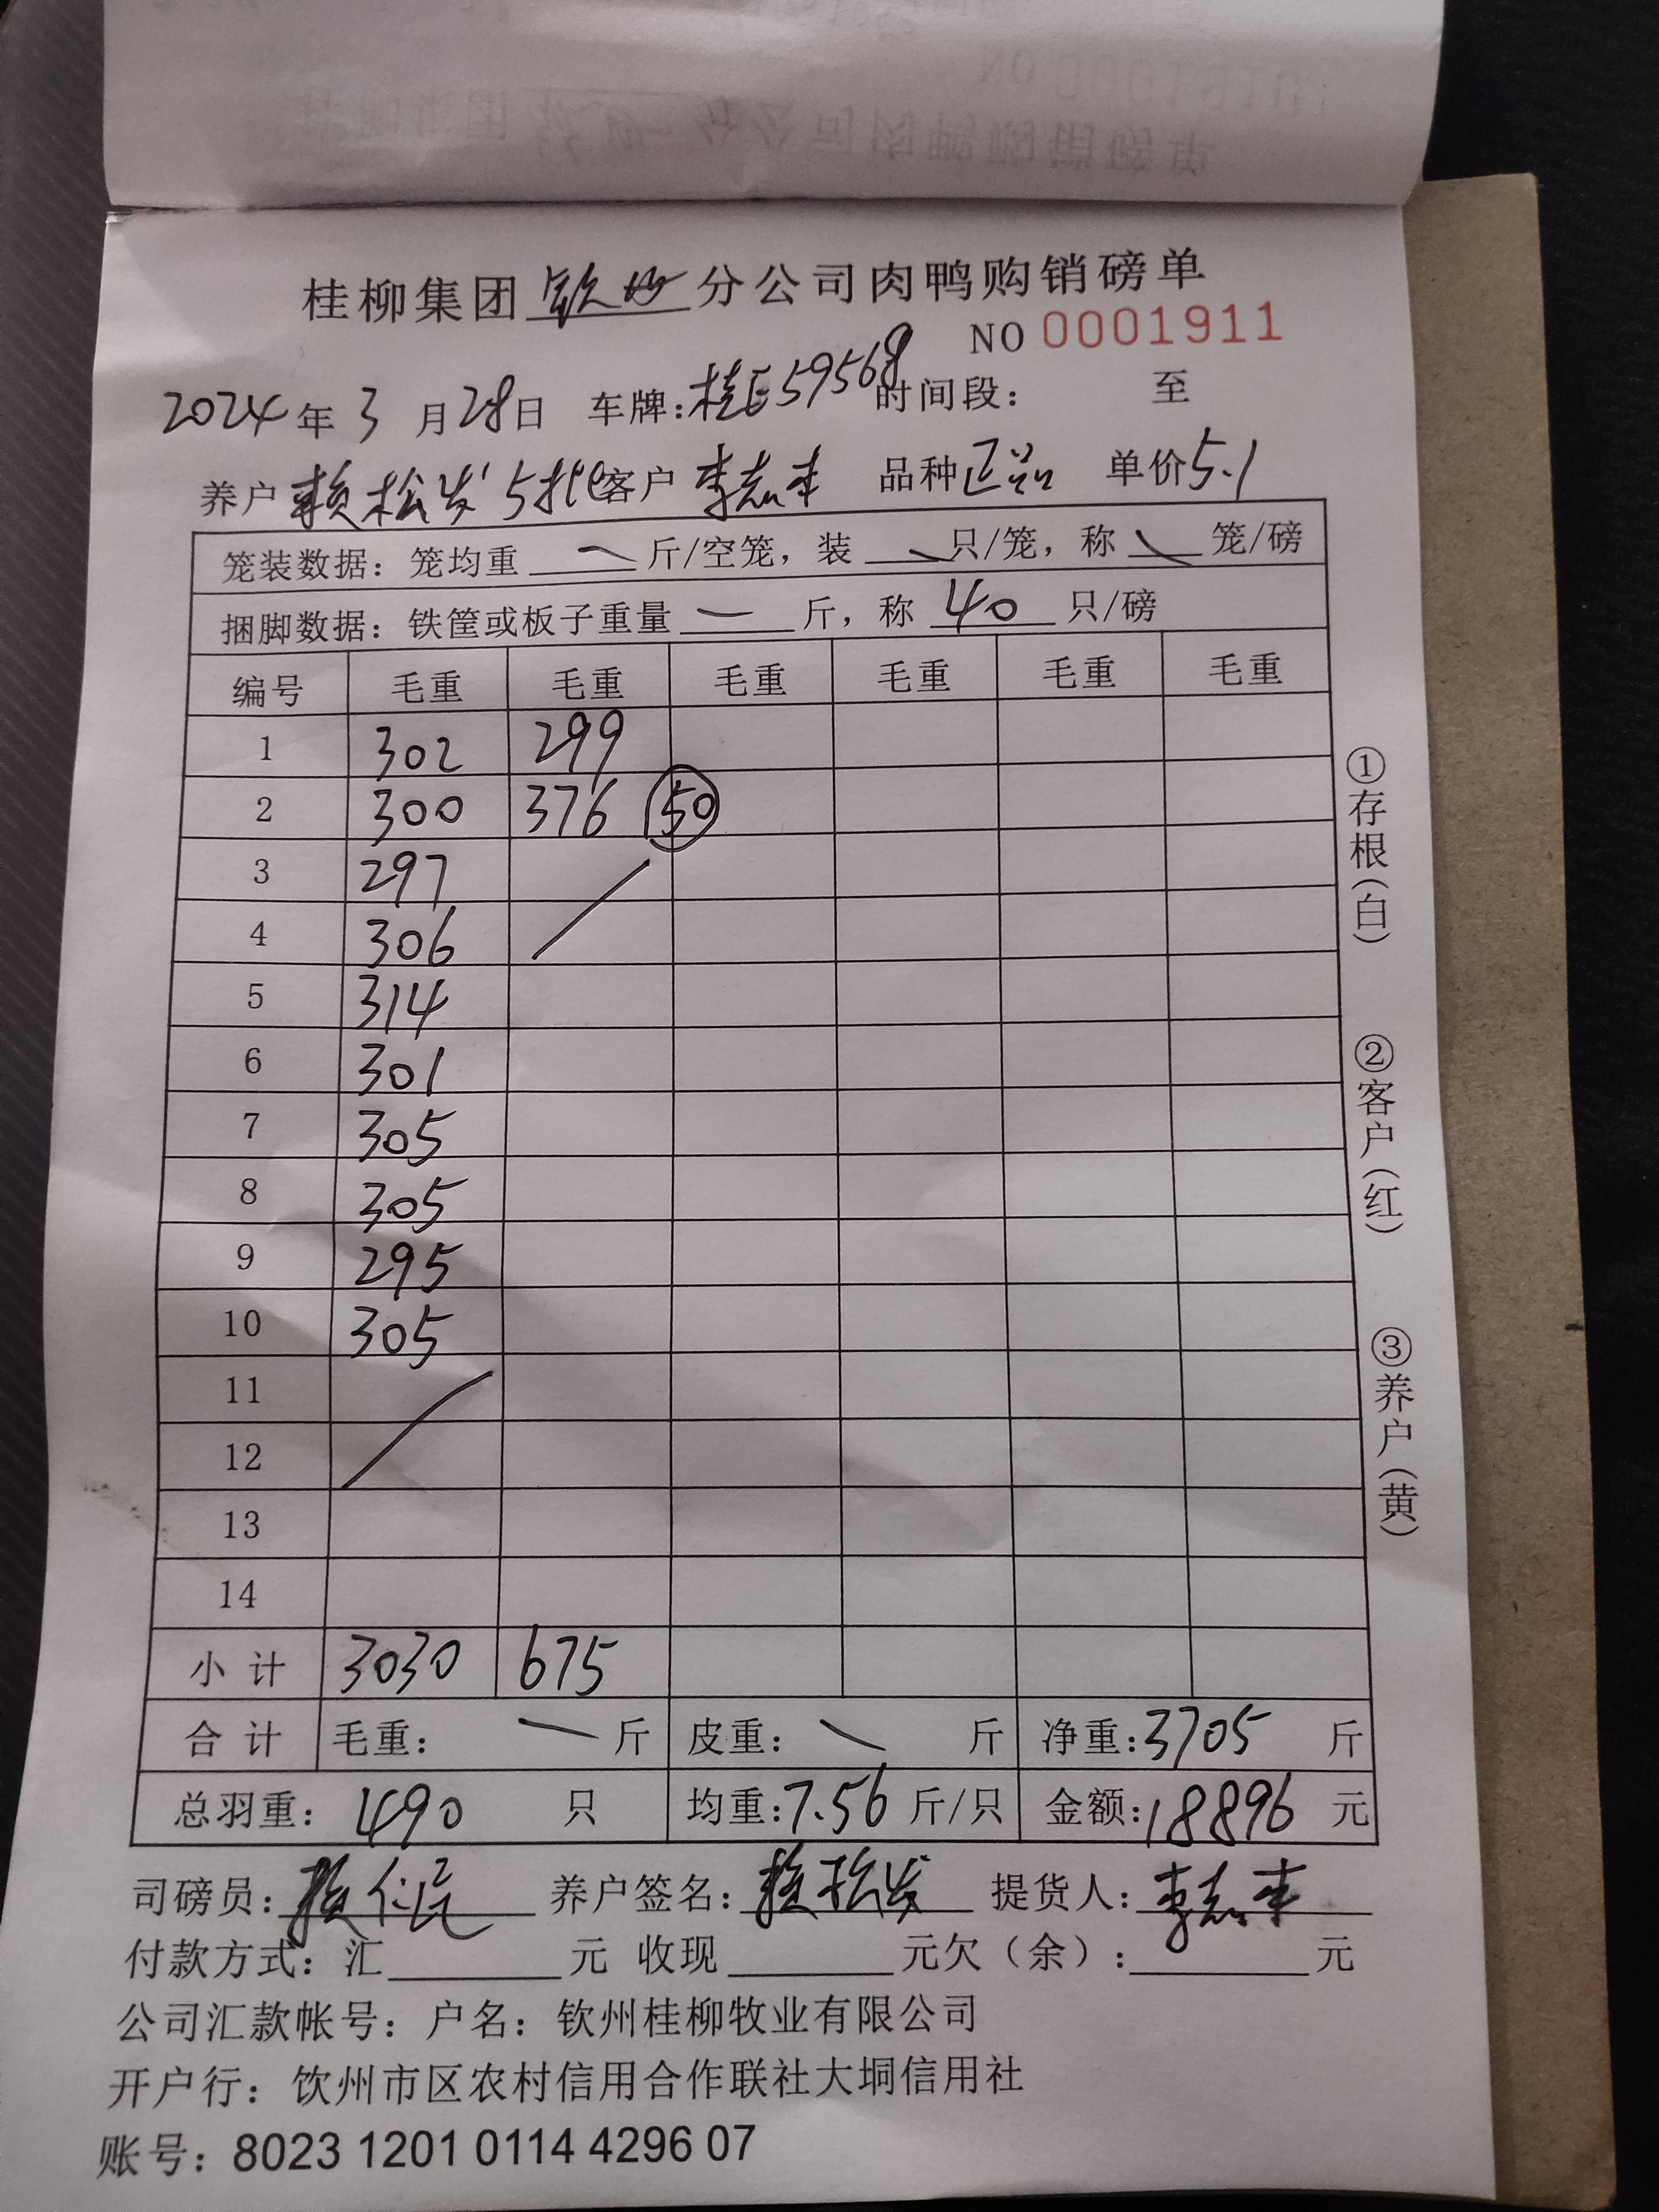 桂柳集团 钦州 分公司肉鸭购销磅单
NO 0001911
2024 年 3 月 28 日 车牌: 桂E59568 时间段: 至
养户 赖松发 5批 客户 李志丰 品种 正品 单价 5.1
笼装数据: 笼均重 — 斤/空笼, 装 — 只/笼, 称 — 笼/磅
捆脚数据: 铁筐或板子重量 — 斤, 称 40 只/磅
编号 毛重 毛重 毛重 毛重 毛重 毛重
1 302 299
2 300 376 50
3 297
4 306
5 314
6 301
7 305
8 305
9 295
10 305
11
12
13
14
小计 3030 675
合计 毛重: — 斤 皮重: — 斤 净重: 3705 斤
总羽重: 490 只 均重: 7.56 斤/只 金额: 18896 元
司磅员: 养户签名: 赖松发 提货人: 李志丰
付款方式: 汇 元 收现 元欠(余): 元
公司汇款帐号: 户名: 钦州桂柳牧业有限公司
开户行: 饮州市区农村信用合作联社大垌信用社
账号: 8023 1201 0114 4296 07
①存根(白)
②客户(红)
③养户(黄)